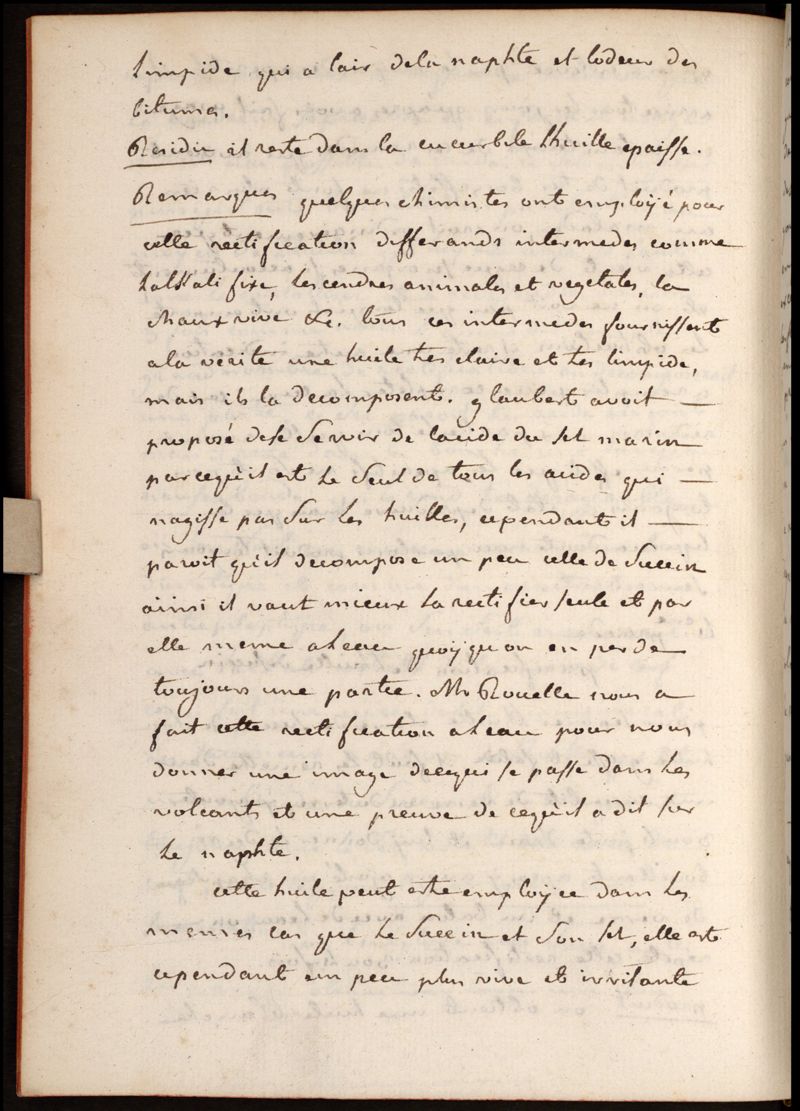 limpide qui a lair dela naphte et lodeur des
bitumes.
Residu il reste dans la cucurbite lhuille epaisse.
Remarques quelques chimistes ont employé pour
cette rectification differands intermedes comme
lalkali fixe, les cendres animales et vegetales, la
chaux vive &c. tous ces intermedes fournissent
ala verité une huile tres claire et tres limpide,
mais ils la decomposent. glaubert avoit —
proposé dese servir de lacide du sel marin
parcequ'il est le seul de tous les acides qui —
nagisse pas sur les huilles, cependant il —
paroit qu'il decompose un peu celle de succin
ainsi il vaut mieux la rectifier seule et par
elle meme aleau quoyqu on en perde
toujours une partie. Mr Rouelle nous a
fait cette rectification aleau pour nous
donner une image decequi se passe dans les
volcants et une preuve de cequ'il a dit sur
le naphte.
cette huile peut estre employee dans les
memes cas que le succin et son sel, elle est
cependant un peu plus vive et irritante